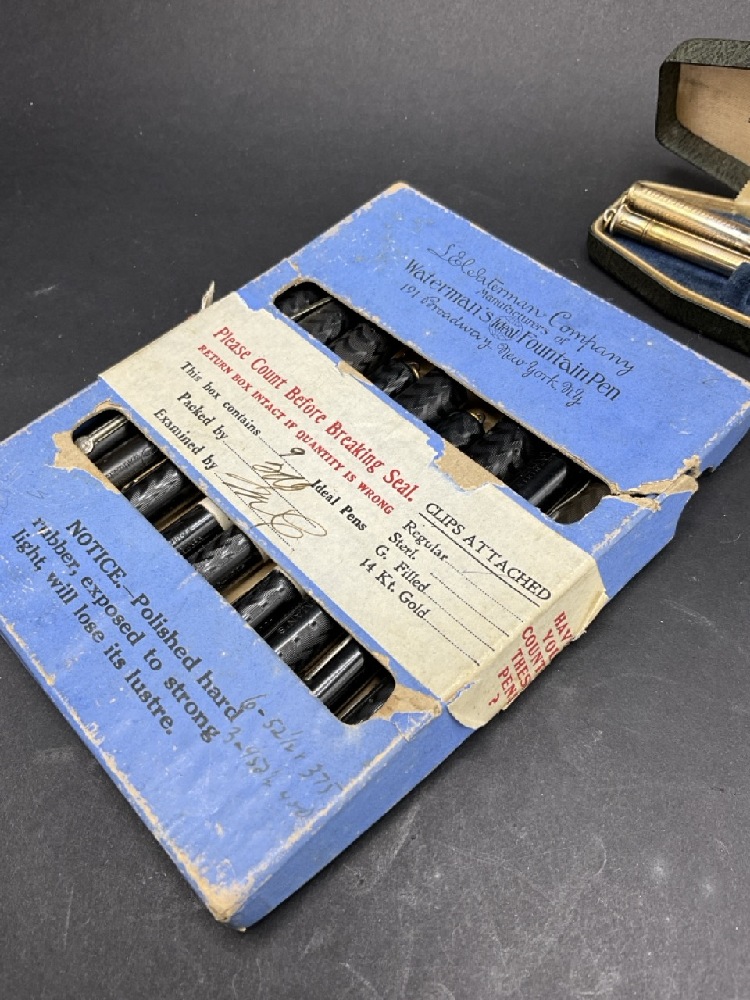 L.E. Waterman Company
Manufacturers of
Waterman's Ideal Fountain Pen
191 Broadway, New York, N.Y.
Please Count Before Breaking Seal.
RETURN BOX INTACT IF QUANTITY IS WRONG
This box contains 9 Ideal Pens
Packed by
Examined by
CLIPS ATTACHED
Regular
Sterl.
G. Filled
14 Kt. Gold
HAVE
YOU
COUNTED
THESE
PENS
?
NOTICE.—Polished hard
rubber, exposed to strong
light, will lose its lustre.
6-52½ 375
3-452½